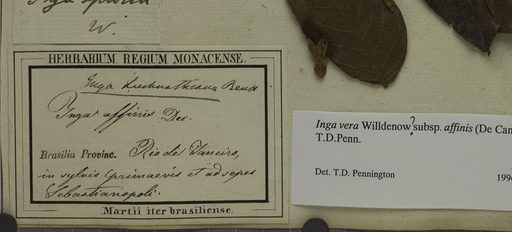 Inga
W.
HERBARIUM REGIUM MONACENSE.
Inga Luschnathiana Benth
Inga affinis Dec.
Brasilia Provinc. Rio de Janeiro,
in sylvis primaevis et ad sepes
Sebastianopoli.
Martii iter brasiliense.
Inga vera Willdenow ? subsp. affinis (De Can
T.D.Penn.
Det. T.D. Pennington
199